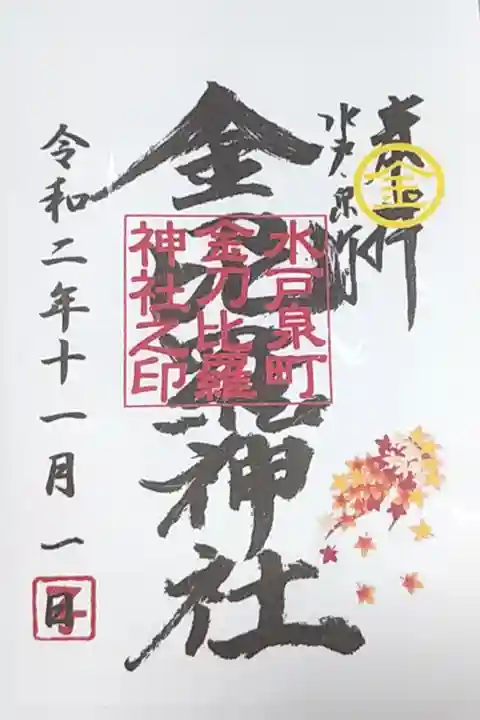 奉拝
金
水戸泉町
金刀比羅神社
水戸泉町
金刀比羅
神社之印
令和二年十一月一日